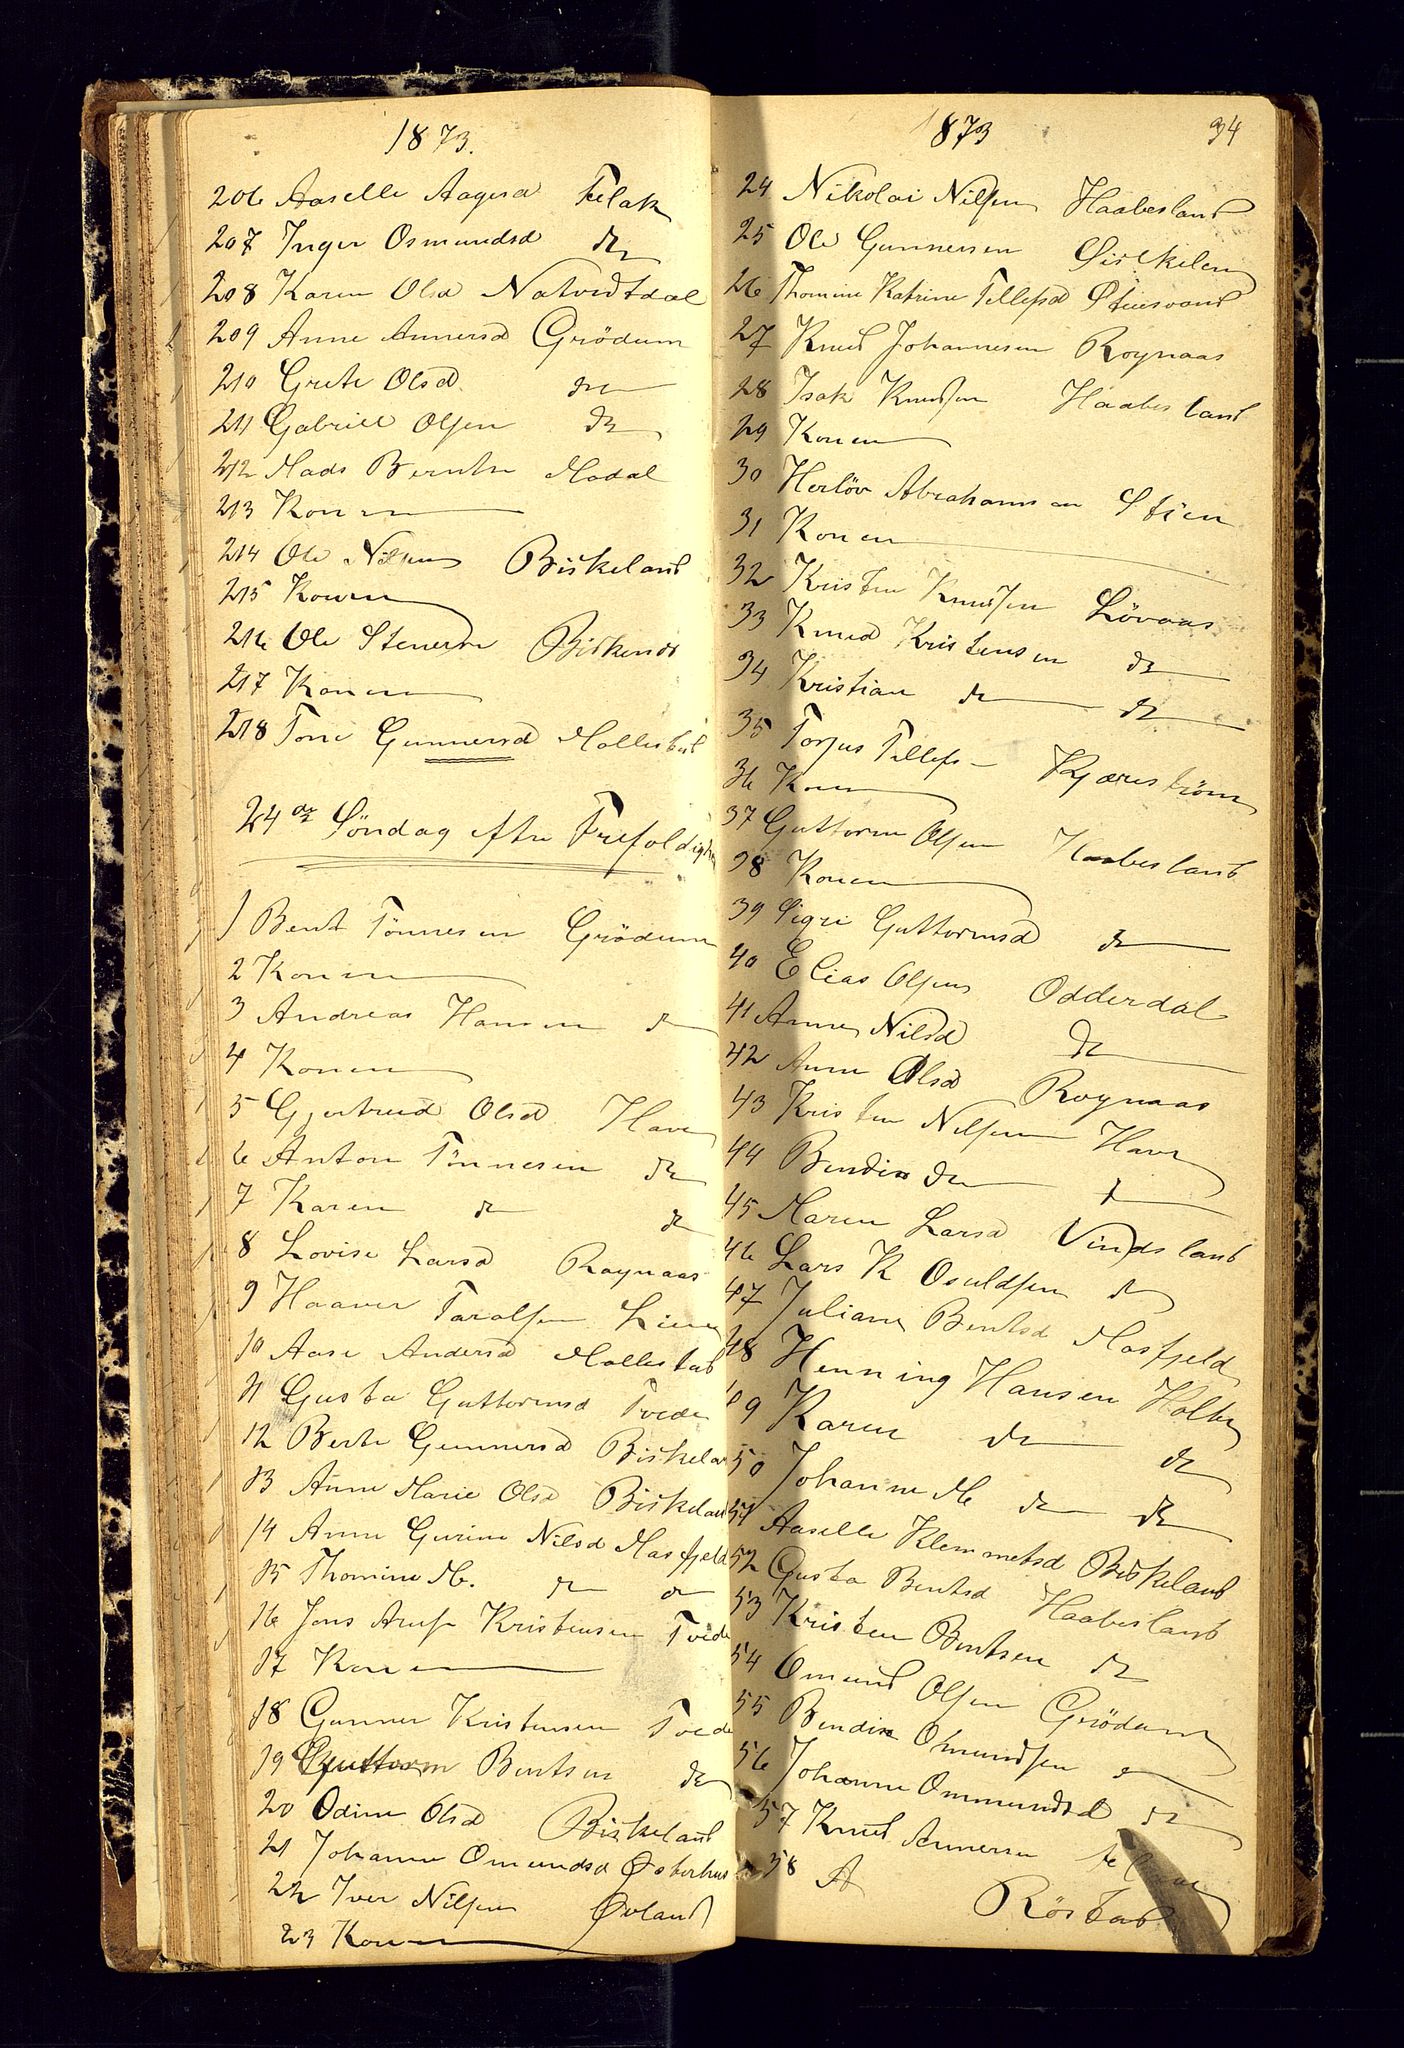 1873.
206 Aaselle Aagesd Felak
207 Inger Osmundsd do
208 Karen Olsd Natvedtdal
209 Anne Annersd Grödum
210 Grete Olsd do
211 Gabriel Olsen do
212 Mads Berntsn Modal
213 Konen
214 Ole Nilsen Birkeland
215 Konen
216 Ole Stenersn Birkenes
217 Konen
218 Tone Gunnersd Mollestad
24de Söndag efter Trefoldighed
1 Bent Tönnesen Grödum
2 Konen
3 Andreas Hansen do
4 Konen
5 Gjertrud Olsd Have
6 Anton Tönnesen do
7 Karen do do
8 Lovise Larsd Røynaas
9 Haaver Taralsen Lien
10 Aase Andersd Mollestad
11 Gusta Guttormsd Tvede
12 Berte Gunnersd Birkeland
13 Anne Marie Olsd Birkeland
14 Anne Gurine Nilsd Masfjeld
15 Thomine M. do do
16 Jens Kristensen Tvede
17 Konen
18 Gunner Kristensen Tvede
19 Guttorm Bentsen do
20 Odine Olsd Birkeland
21 Johanne Omundsd Østerhus
22 Iver Nilsen Øvland
23 Konen
1873 34
24 Nikolai Nilsen Haabesland
25 Ole Gunnersen
26 Thomine Katrine Tellefsd Stensvand
27 Knud Johannesen Roynaas
28 Isak Knudsen Haabesland
29 Konen
30 Herlöv Abrahamsen Stien
31 Konen
32 Kristen Knudsen Lövaas
33 Knud Kristensen do
34 Kristian do do
35 Torjus Tellefs- Kjæreström
36 Konen
37 Guttorm Olsen Haabesland
38 Konen
39 Sigri Guttormsd do
40 Elias Olsen Odderdal
41 Anne Nilsd do
42 Anne Olsd Roynaas
43 Kristen Nilsen Have
44 Bendix do do
45 Maren Larsd Vindsland
46 Lars K Osuldsen do
47 Juliane Bentsd Masfjeld
48 Henning Hansen Holte
49 Karen do do
50 Johanne M. do do
51 Aaselle Klemmetsd Birkeland
52 Gusta Bentsd Haabesland
53 Kristen Bentsen do
54 Omund Olsen Grödum
55 Bendix Omundsen do
56 Johanne Ommundsd do
57 Knud Annersen
58 A
Röstad